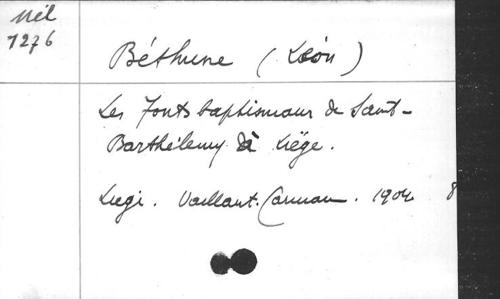 Mél
1276
Béthune (Léon)
Les Fonts baptismaux de Saint-
Barthélemy à Liége.
Liege. Vaillant-Carmanne. 1904 8